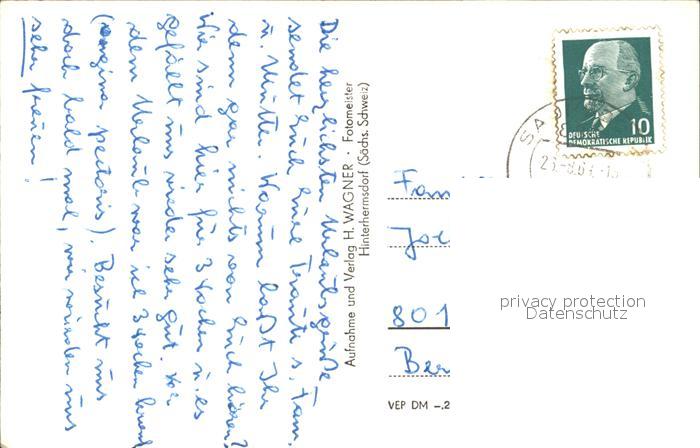 Die herzlichsten Urlaubsgrüße
sendet Euch Eure Traute s. Fam.
u. Mutter. Warum laßt Ihr
denn gar nichts von Euch hören?
Wir sind hier für 3 Wochen u. es
gefällt uns wieder sehr gut. Vor
dem Urlaub war ich 3 Wochen krank
(angina pectoris). Besucht uns
doch bald mal, wir würden uns
sehr freuen!
Aufnahme und Verlag H. WAGNER · Fotomeister
Hinterhermsdorf (Sächs. Schweiz)
DEUTSCHE 10
DEMOKRATISCHE REPUBLIK
Fam
801
Ber
VEP DM –.2
privacy protection
Datenschutz